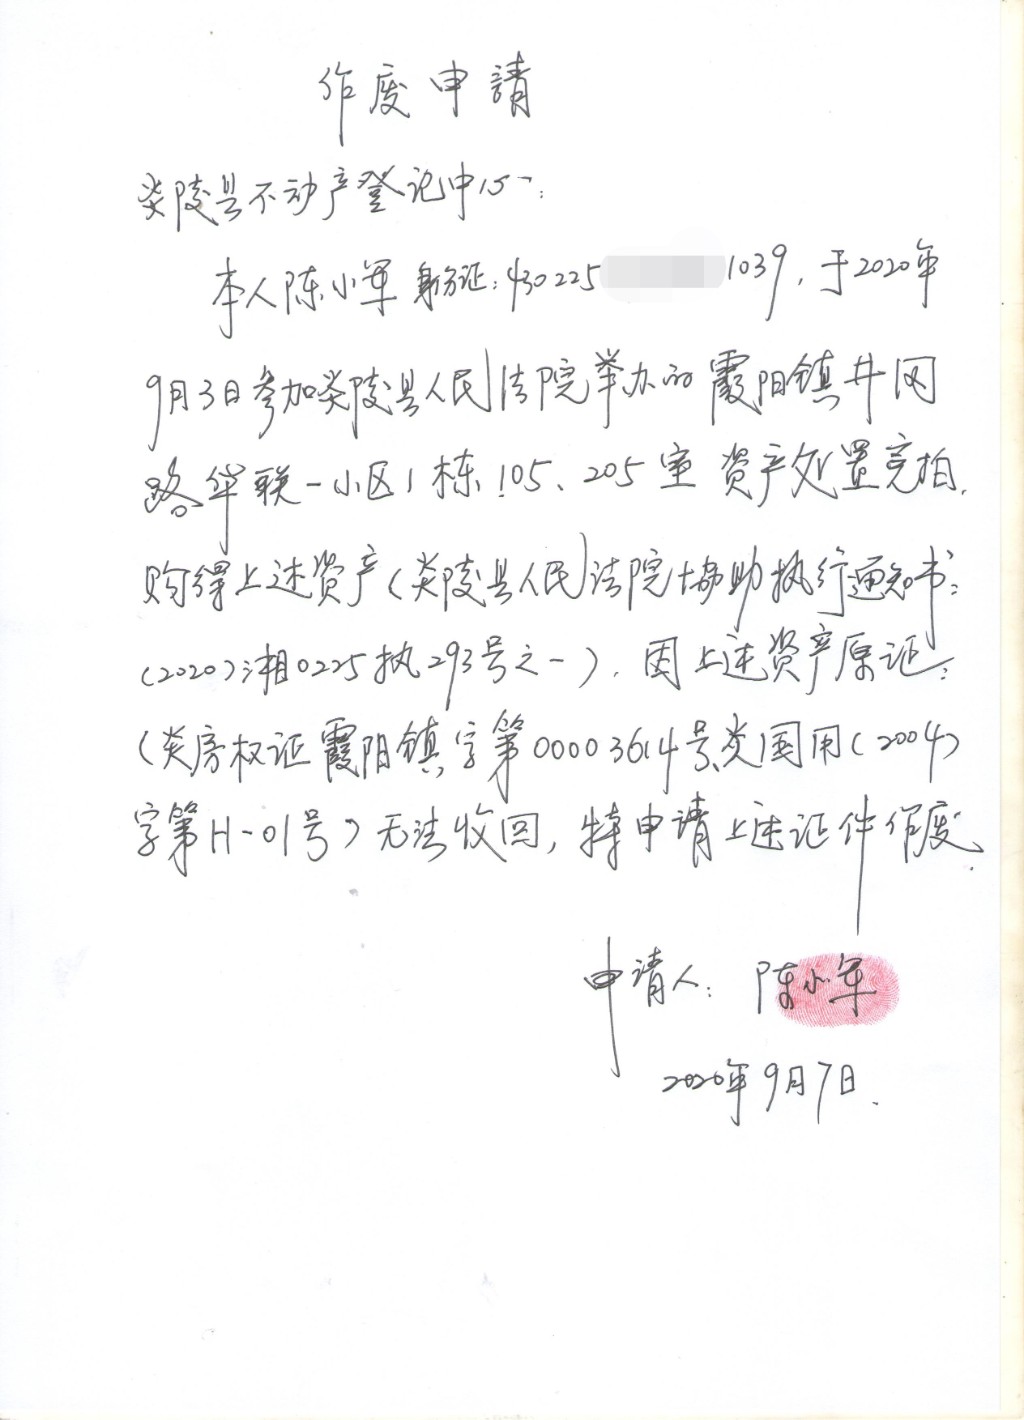 作废申請
炎陵县不动产登记中心:
本人陈小军身份证:430225 1039,于2020年
9月3日参加炎陵县人民法院举办的霞阳镇井冈
路华联一小区1栋105、205室资产处置竞拍,
购得上述资产(炎陵县人民法院协助执行通知书:
(2020)湘0225执293号之一),因上述资产原证:
(炎房权证霞阳镇字第00003614号、炎国用(2004)
字第H-01号)无法收回,特申请上述证件作废.
申请人:陈小军
2020年9月7日.